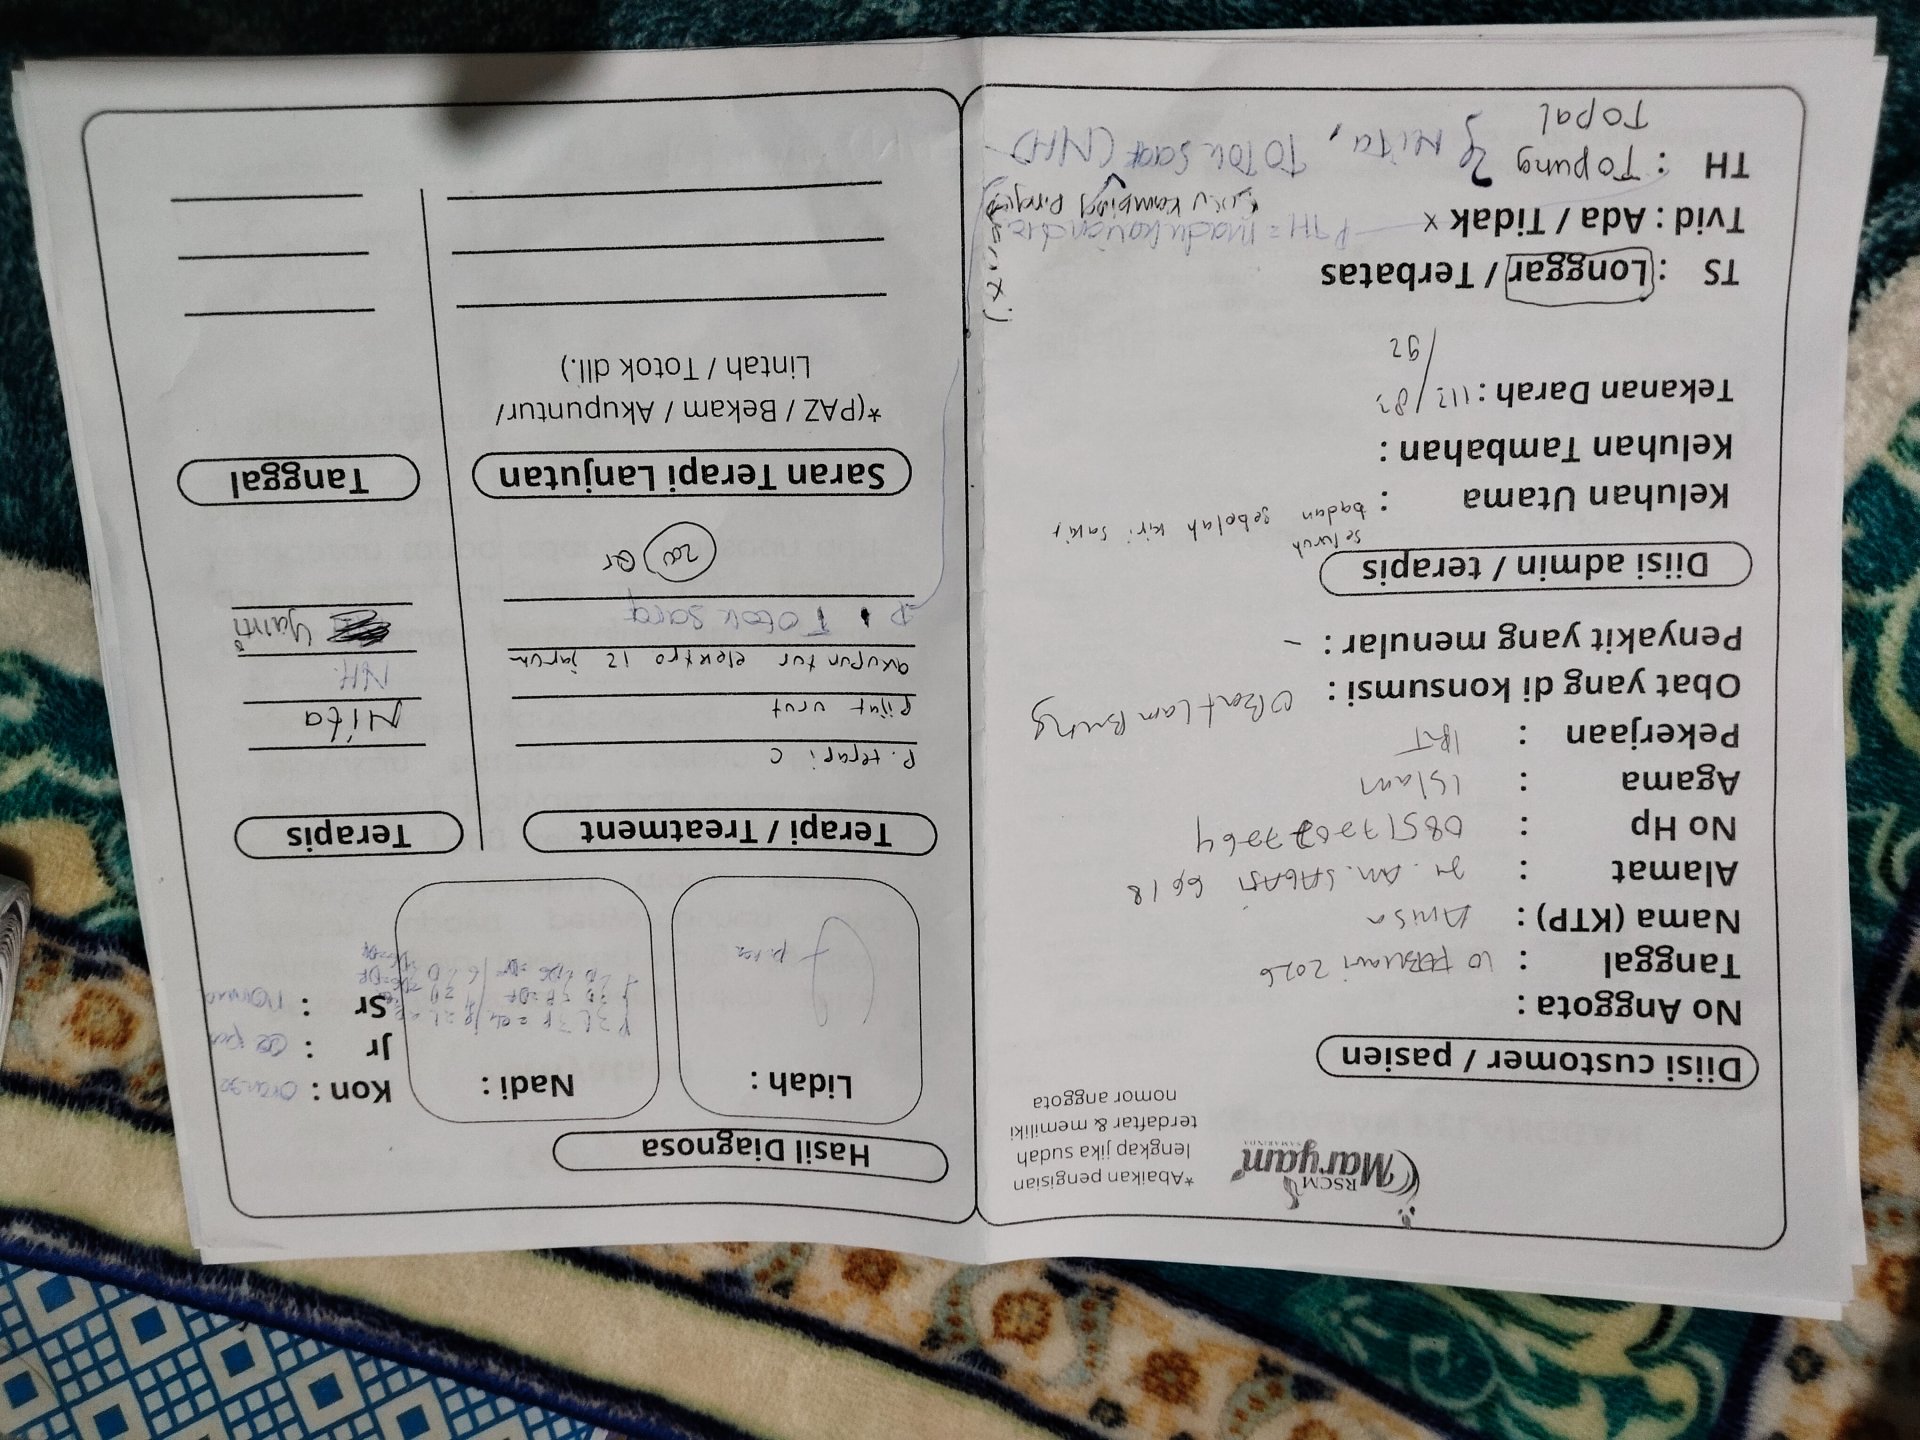 RSCM
Maryam
SAMARINDA
*Abaikan pengisian
lengkap jika sudah
terdaftar & memiliki
nomor anggota
Diisi customer / pasien
No Anggota :
Tanggal : 10 FEBRUARI 2026
Nama (KTP) : Anisa
Alamat :
No Hp :
Agama : Islam
Pekerjaan : IRT
Obat yang di konsumsi : OBat LamBung
Penyakit yang menular : -
Diisi admin / terapis
Keluhan Utama : seluruh
badan sebelah kiri sakit
Keluhan Tambahan :
Tekanan Darah : 113/83
/92
TS : Longgar / Terbatas
Tvid : Ada / Tidak x
susu kambing
TH : Topung } Nita, TOTOK Saraf (NH)
Topal
Hasil Diagnosa
Lidah :
Nadi :
Kon : orange
Jr :
Sr : Normal
Terapi / Treatment
Terapis
P. terapi C
pijat urut Nita
akupuntur elektro 12 jarum NH
Totok saraf Yanti
200 Gr
Saran Terapi Lanjutan
Tanggal
*(PAZ / Bekam / Akupuntur/
Lintah / Totok dll.)